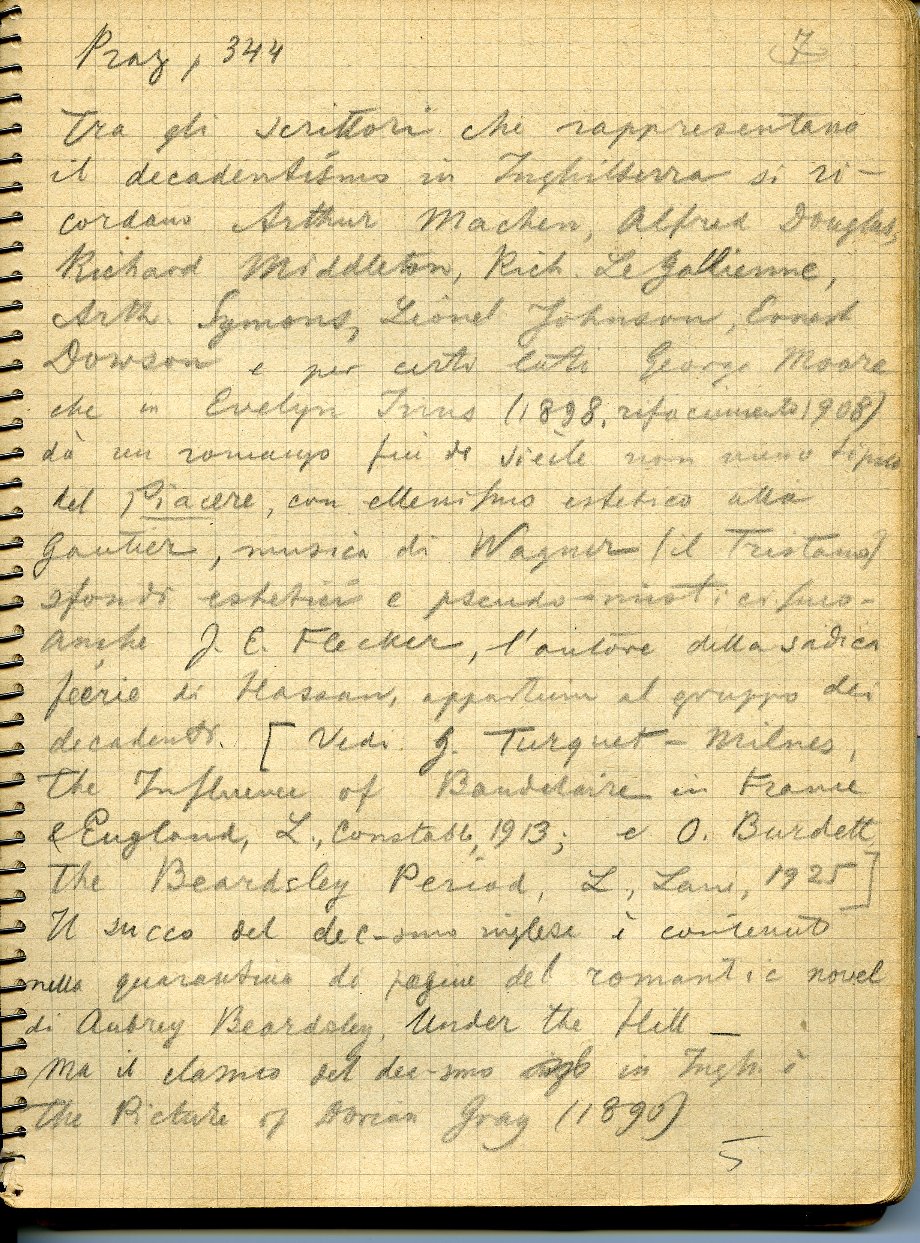 Praz, 344
7
Tra gli scrittori che rappresentano
il decadentismo in Inghilterra si ri-
cordano Arthur Machen, Alfred Douglas,
Richard Middleton, Rich. Le Gallienne,
Arth. Symons, Lionel Johnson, Ernest
Dowson e per certi lati George Moore
che in Evelyn Innes (1898, rifacimento 1908)
dà un romanzo fin de siècle non meno tipico
del Piacere, con ellenismo estetico alla
Gautier, musica di Wagner (il Tristano)
sfondi estetici e pseudo-misticismo-
Anche J. E. Flecker, l'autore della sadica
féerie di Hassan, appartiene al gruppo dei
decadenti. [Vedi G. Turquet-Milnes,
The Influence of Baudelaire in France
& England, L., Constable, 1913; e O. Burdett
The Beardsley Period, L., Lane, 1925]
Il succo del dec-smo inglese è contenuto
nella quarantina di pagine del romantic novel
di Aubrey Beardsley, Under the Hill_
Ma il classico del dec-smo in Ingh. è
The Picture of Dorian Gray (1890)
5